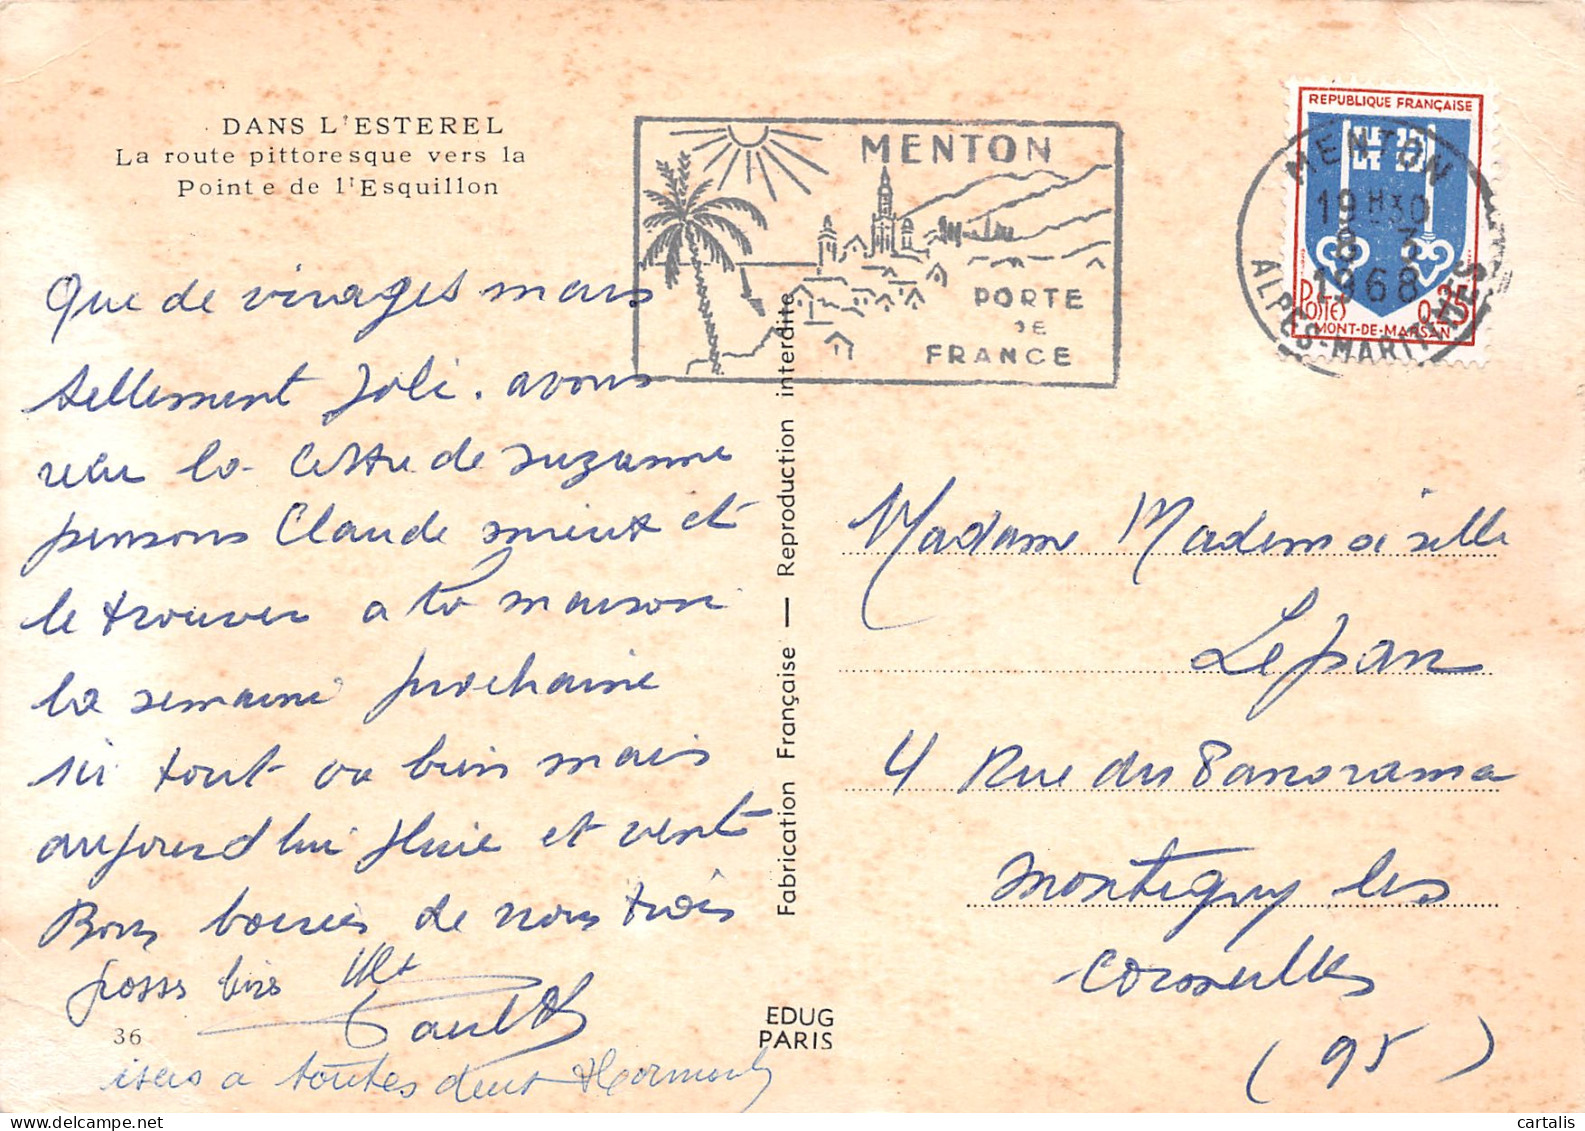 DANS L'ESTEREL
La route pittoresque vers la
Pointe de l'Esquillon
MENTON
PORTE
DE
FRANCE
REPUBLIQUE FRANÇAISE
POSTES 0,25
MONT-DE-MARSAN
MENTON
19H30
8 3
1968
ALPES-MARITIMES
Que de virages mais
tellement Joli. avons
vu la de suzanne
pensons Claude mieux et
le trouver a la maison
la semaine prochaine
si tout va bien mais
aujourd'hui pluie et vent
Bons baisers de nous trois
grosses bises
Paulette
a toutes deux
36
Fabrication Française — Reproduction interdite
EDUG
PARIS
Madame Mademoiselle
Lepan
4 Rue du Panorama
Montigny les
Cormeilles
(95)
cartalis